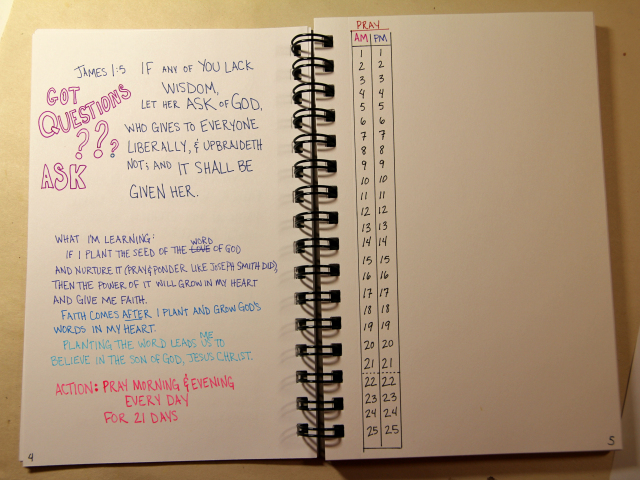 JAMES 1:5 IF ANY OF YOU LACK
WISDOM,
LET HER ASK OF GOD,
WHO GIVES TO EVERYONE
LIBERALLY, & UPBRAIDETH
NOT; AND IT SHALL BE
GIVEN HER.
GOT
QUESTIONS
???
ASK
WHAT I'M LEARNING:
IF I PLANT THE SEED OF THE LOVE WORD OF GOD
AND NURTURE IT (PRAY & PONDER LIKE JOSEPH SMITH DID)
THEN THE POWER OF IT WILL GROW IN MY HEART
AND GIVE ME FAITH.
FAITH COMES AFTER I PLANT AND GROW GOD'S
WORDS IN MY HEART.
PLANTING THE WORD LEADS US ME TO
BELIEVE IN THE SON OF GOD, JESUS CHRIST.
ACTION: PRAY MORNING & EVENING
EVERY DAY
FOR 21 DAYS
4
PRAY
AM PM
1 1
2 2
3 3
4 4
5 5
6 6
7 7
8 8
9 9
10 10
11 11
12 12
13 13
14 14
15 15
16 16
17 17
18 18
19 19
20 20
21 21
22 22
23 23
24 24
25 25
5